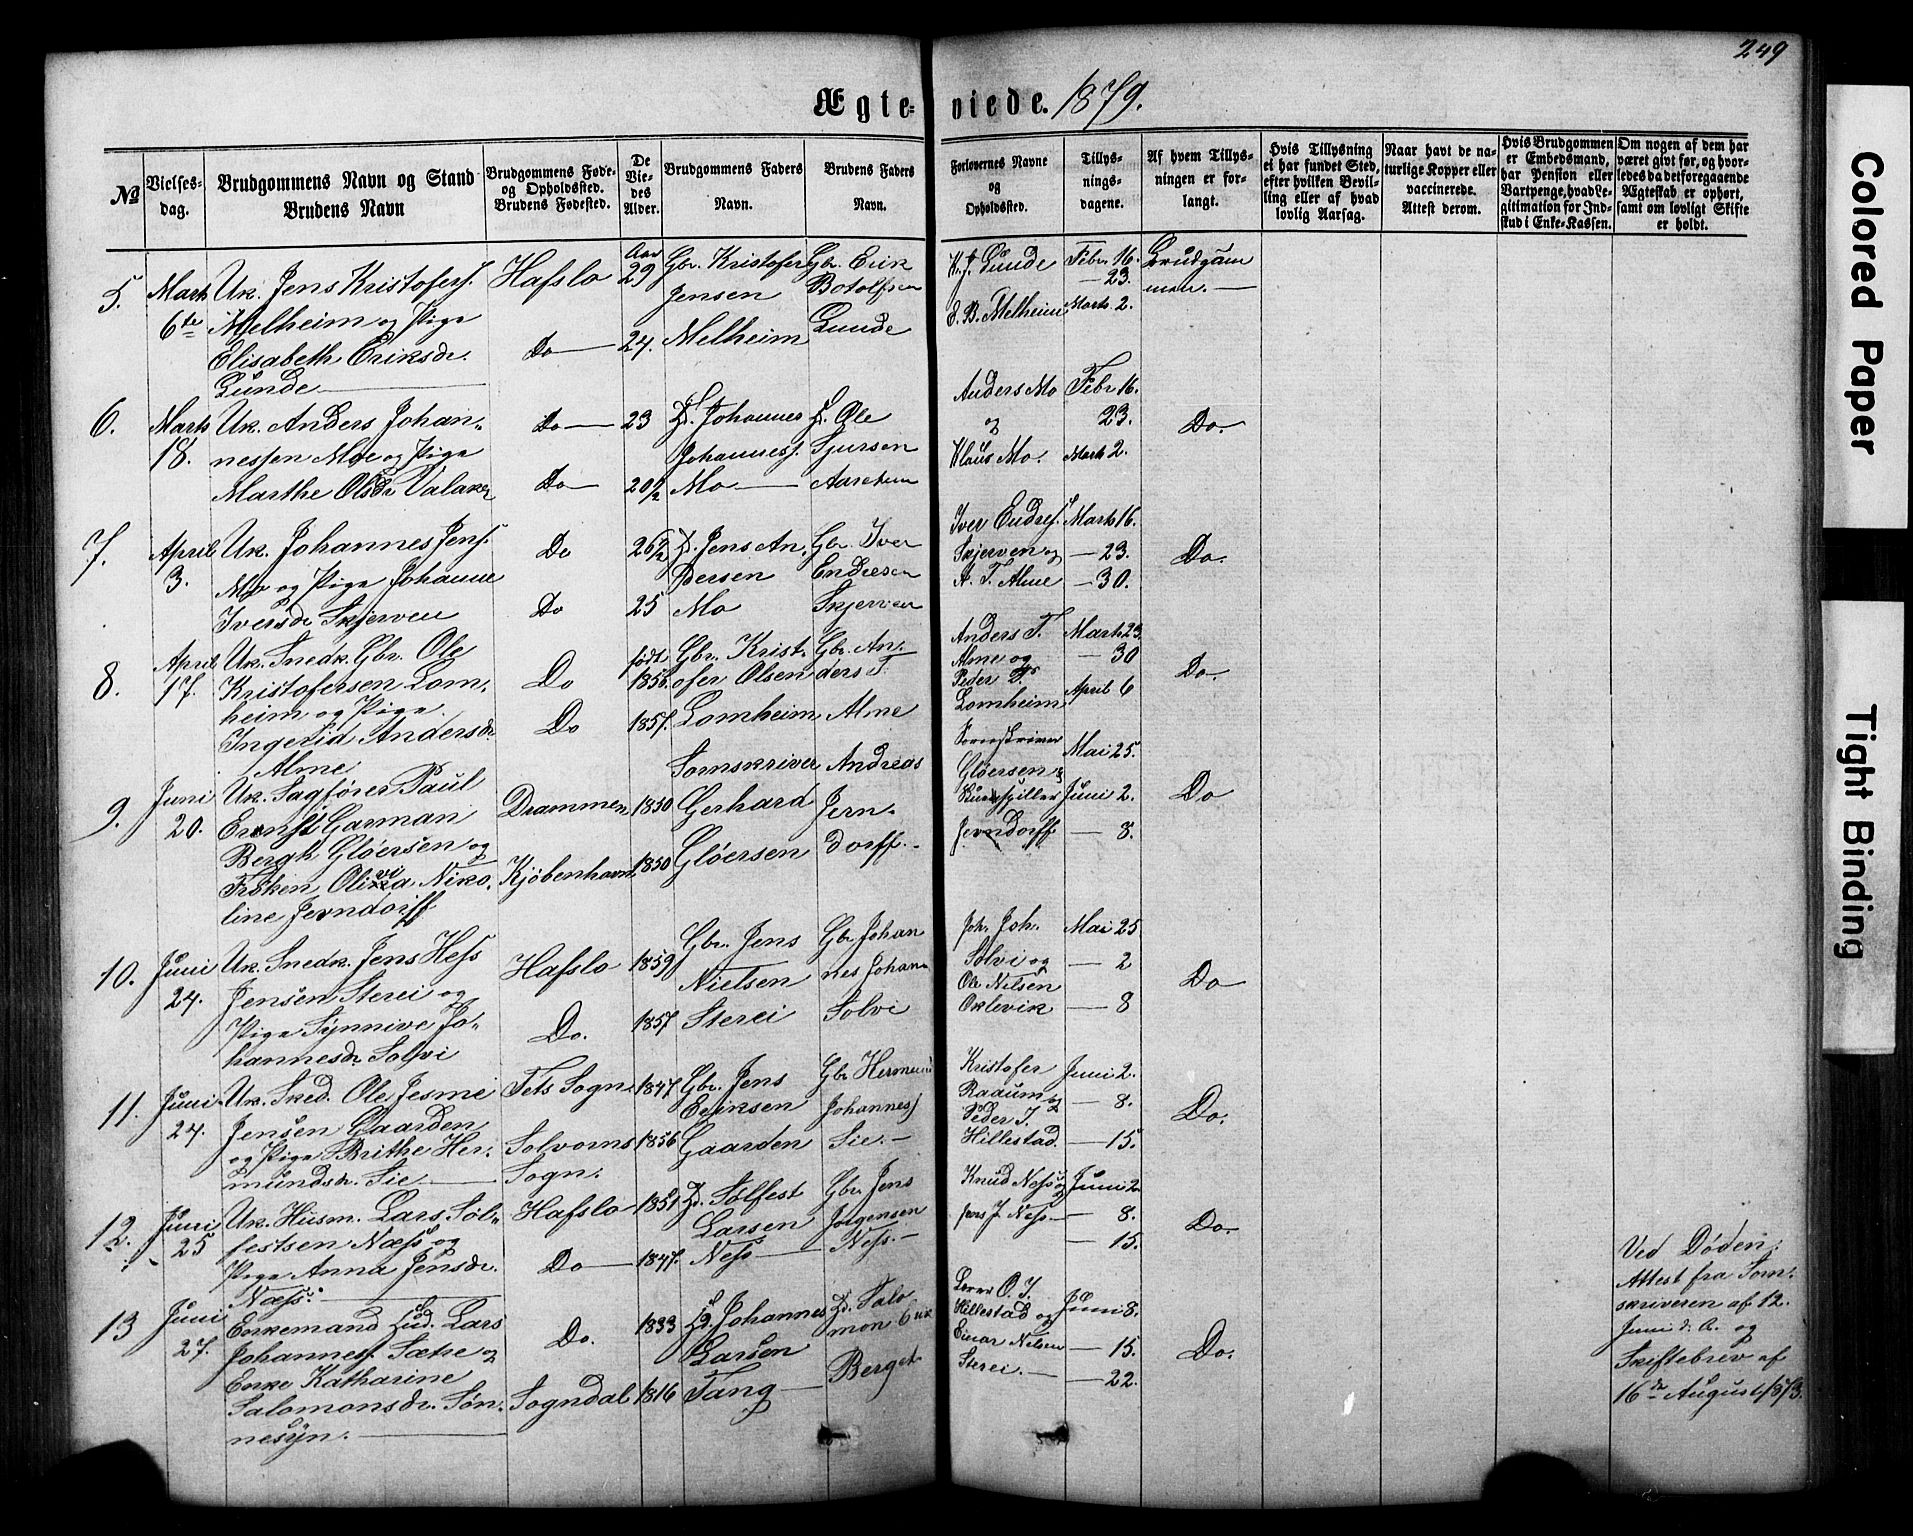 249
Ægte- viede. 1879.
No
Vielses-
dag.
Brudgommens Navn og Stand
Brudens Navn
Brudgommens Føde-
og Opholdssted.
Brudens Fødested.
De
Vie-
des
Alder.
Brudgommens Faders
Navn.
Brudens Faders
Navn.
Forlovernes Navne
og
Opholdssted.
Tillys-
nings-
dagene.
Af hvem Tillys-
ningen er for-
langt.
Hvis Tillysning
ei har fundet Sted,
efter hvilken Bevil-
ling eller af hvad
lovlig Aarsag.
Naar havt de na-
turlige Kopper eller
vaccinerede.
Attest derom.
Hvis Brudgommen
er Embedsmand,
har Pension eller
Vartpenge, hvad Le-
gitimation for Ind-
skud i Enke-Kassen.
Om nogen af dem har
været givt før, og hvor-
ledes da det foregaaende
Ægteskab er ophørt,
samt om lovligt Skifte
er holdt.
5.
Marts
6te
Uk. Jens Kristofers.
Melheim og Pige
Elisabeth Eriksdr.
Lunde
Hafslo
Do
Aar
29
24.
Gbr. Kristofer
Jensen
Melheim
Gbr. Erik
Botolfsen
Lunde
K. J. Lunde
E. B. Melheim
Febr. 16.
— 23.
Marts 2.
Brudgam
men. —
6.
Marts
18.
Uk. Anders Johan-
nessen Moe og Pige
Marthe Olsdr Valaker
Do
Do
23
20½
Johannes
Johanness.
Mo
Ole
Sjursen
Anders Mo
og
Klaus Mo.
Febr 16.
23.
Marts 2.
Do.
7.
April
3.
Uk. Johannes Jens.
Mo og Pige Johanne
Iversdr Skjerven
Do
Do
25
Jens An-
dersen
Mo
Gbr. Iver
Endresen
Skjerven
Iver Endres.
Skjerven og
A. T. Alme
Marts 16.
— 23.
— 30.
Do.
8.
April
17.
Uk. Snedk. Gbr. Ole
Kristofersen Lom-
heim og Pige
Ingerid Andersdr.
Alme
Do
Do
født
1856.
1857.
Gbr. Krist-
ofer Olsen
Lomheim
Gbr. An-
ders T.
Alme
Anders T.
Alme og
Peder
Lomheim
Marts 23.
— 30
April 6
Do.
9.
Juni
20.
Uk. Sagfører Paul
Ernst Garman
Bergh Gløersen og
Frøken Olivia Niko-
line Jerndorff
Drammen
Kjøbenhavn
1850
1850
Sornskriver
Gerhard
Gløersen
Andreas
Jern-
dorff.
Sorenskriver
Gløersen og
Skuespiller
Jerndorff
Mai 25.
Juni 2.
— 8.
Do
10.
Juni
24.
Uk. Snedk. Jens Hess
Jensen Sterei og
Pige Synnive Jo-
hannesdr. Solvi
Hafslo
Do.
1859
1857
Gbr. Jens
Nielsen
Sterei
Gbr Johan
nes Johan-
Solvi
Joh. Joh.
Solvi og
Ole Nilsen
Oklevik
Mai 25
— 2
— 8
Do
11.
Juni
24.
Uk. Sked. Ole Jesme
Jensen Gaarden
og Pige Brithe Her-
mundsdr. Sie
Fets Sogn
Solvorns
Sogn.
1847
1856
Gbr. Jens
Eriksen
Gaarden
Gbr Hermund
Johannes.
Sie. —
Kristofer
Raaum og
Peder I.
Hillestad.
Juni 2.
— 8.
— 15.
Do.
12.
Juni
25
Uk. Husm. Lars Søl-
festsen Næss og
Pige Anna Jensdr.
Næss.
Hafslo
Do
1851
1847.
Sølfest
Larsen
Ness
Gbr. Jens
Jorgensen
Ness. —
Knud Ness og
Jens J. Ness
Juni 2
— 8.
— 15.
Do.
13
Juni
27.
Enkemand Lars
Johanness. Sætre og
Enke Katharine
Salomonsdr. Søn-
nesyn.
Do.
Sogndal
1833
1816
Johannes
Larsen
Tang
Salo
mon
Berget
Lærer O. I.
Hillestad og
Einar Nilsen
Sterei.
Juni 8.
— 15.
— 22.
Do.
Ved Døden.
Attest fra Sorn-
skriveren af 12.
Juni d. A. og
Skiftebrev af
16de August 1873.
Colored Paper
Tight Binding